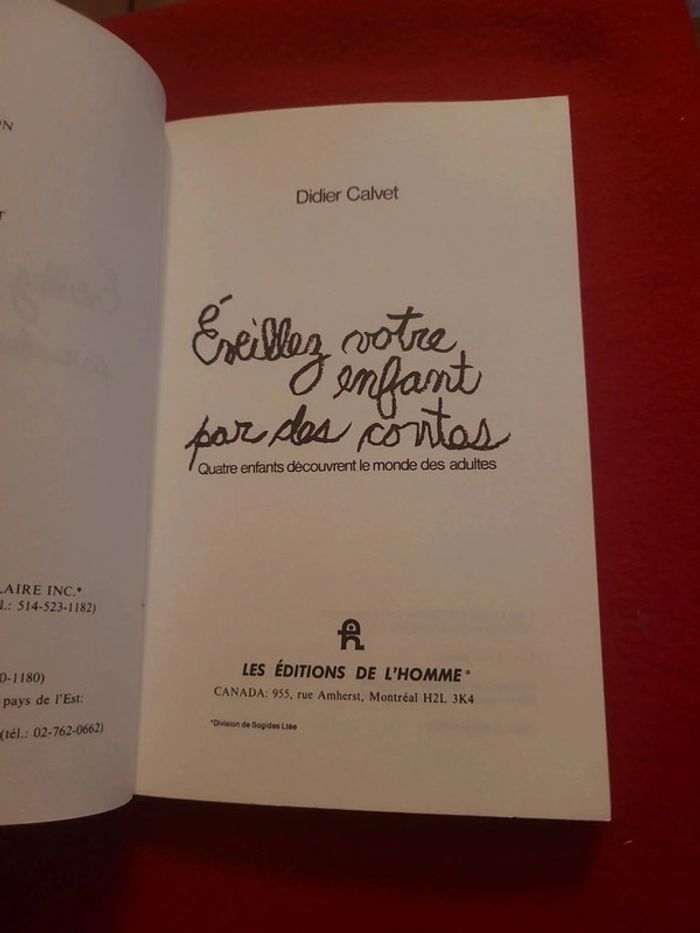 PN
T
LAIRE INC.*
l.: 514-523-1182)
0-1180)
pays de l'Est:
(tél.: 02-762-0662)
Didier Calvet
Éveillez votre
enfant
par des contes
Quatre enfants découvrent le monde des adultes
LES ÉDITIONS DE L'HOMME*
CANADA: 955, rue Amherst, Montréal H2L 3K4
*Division de Sogides Ltée